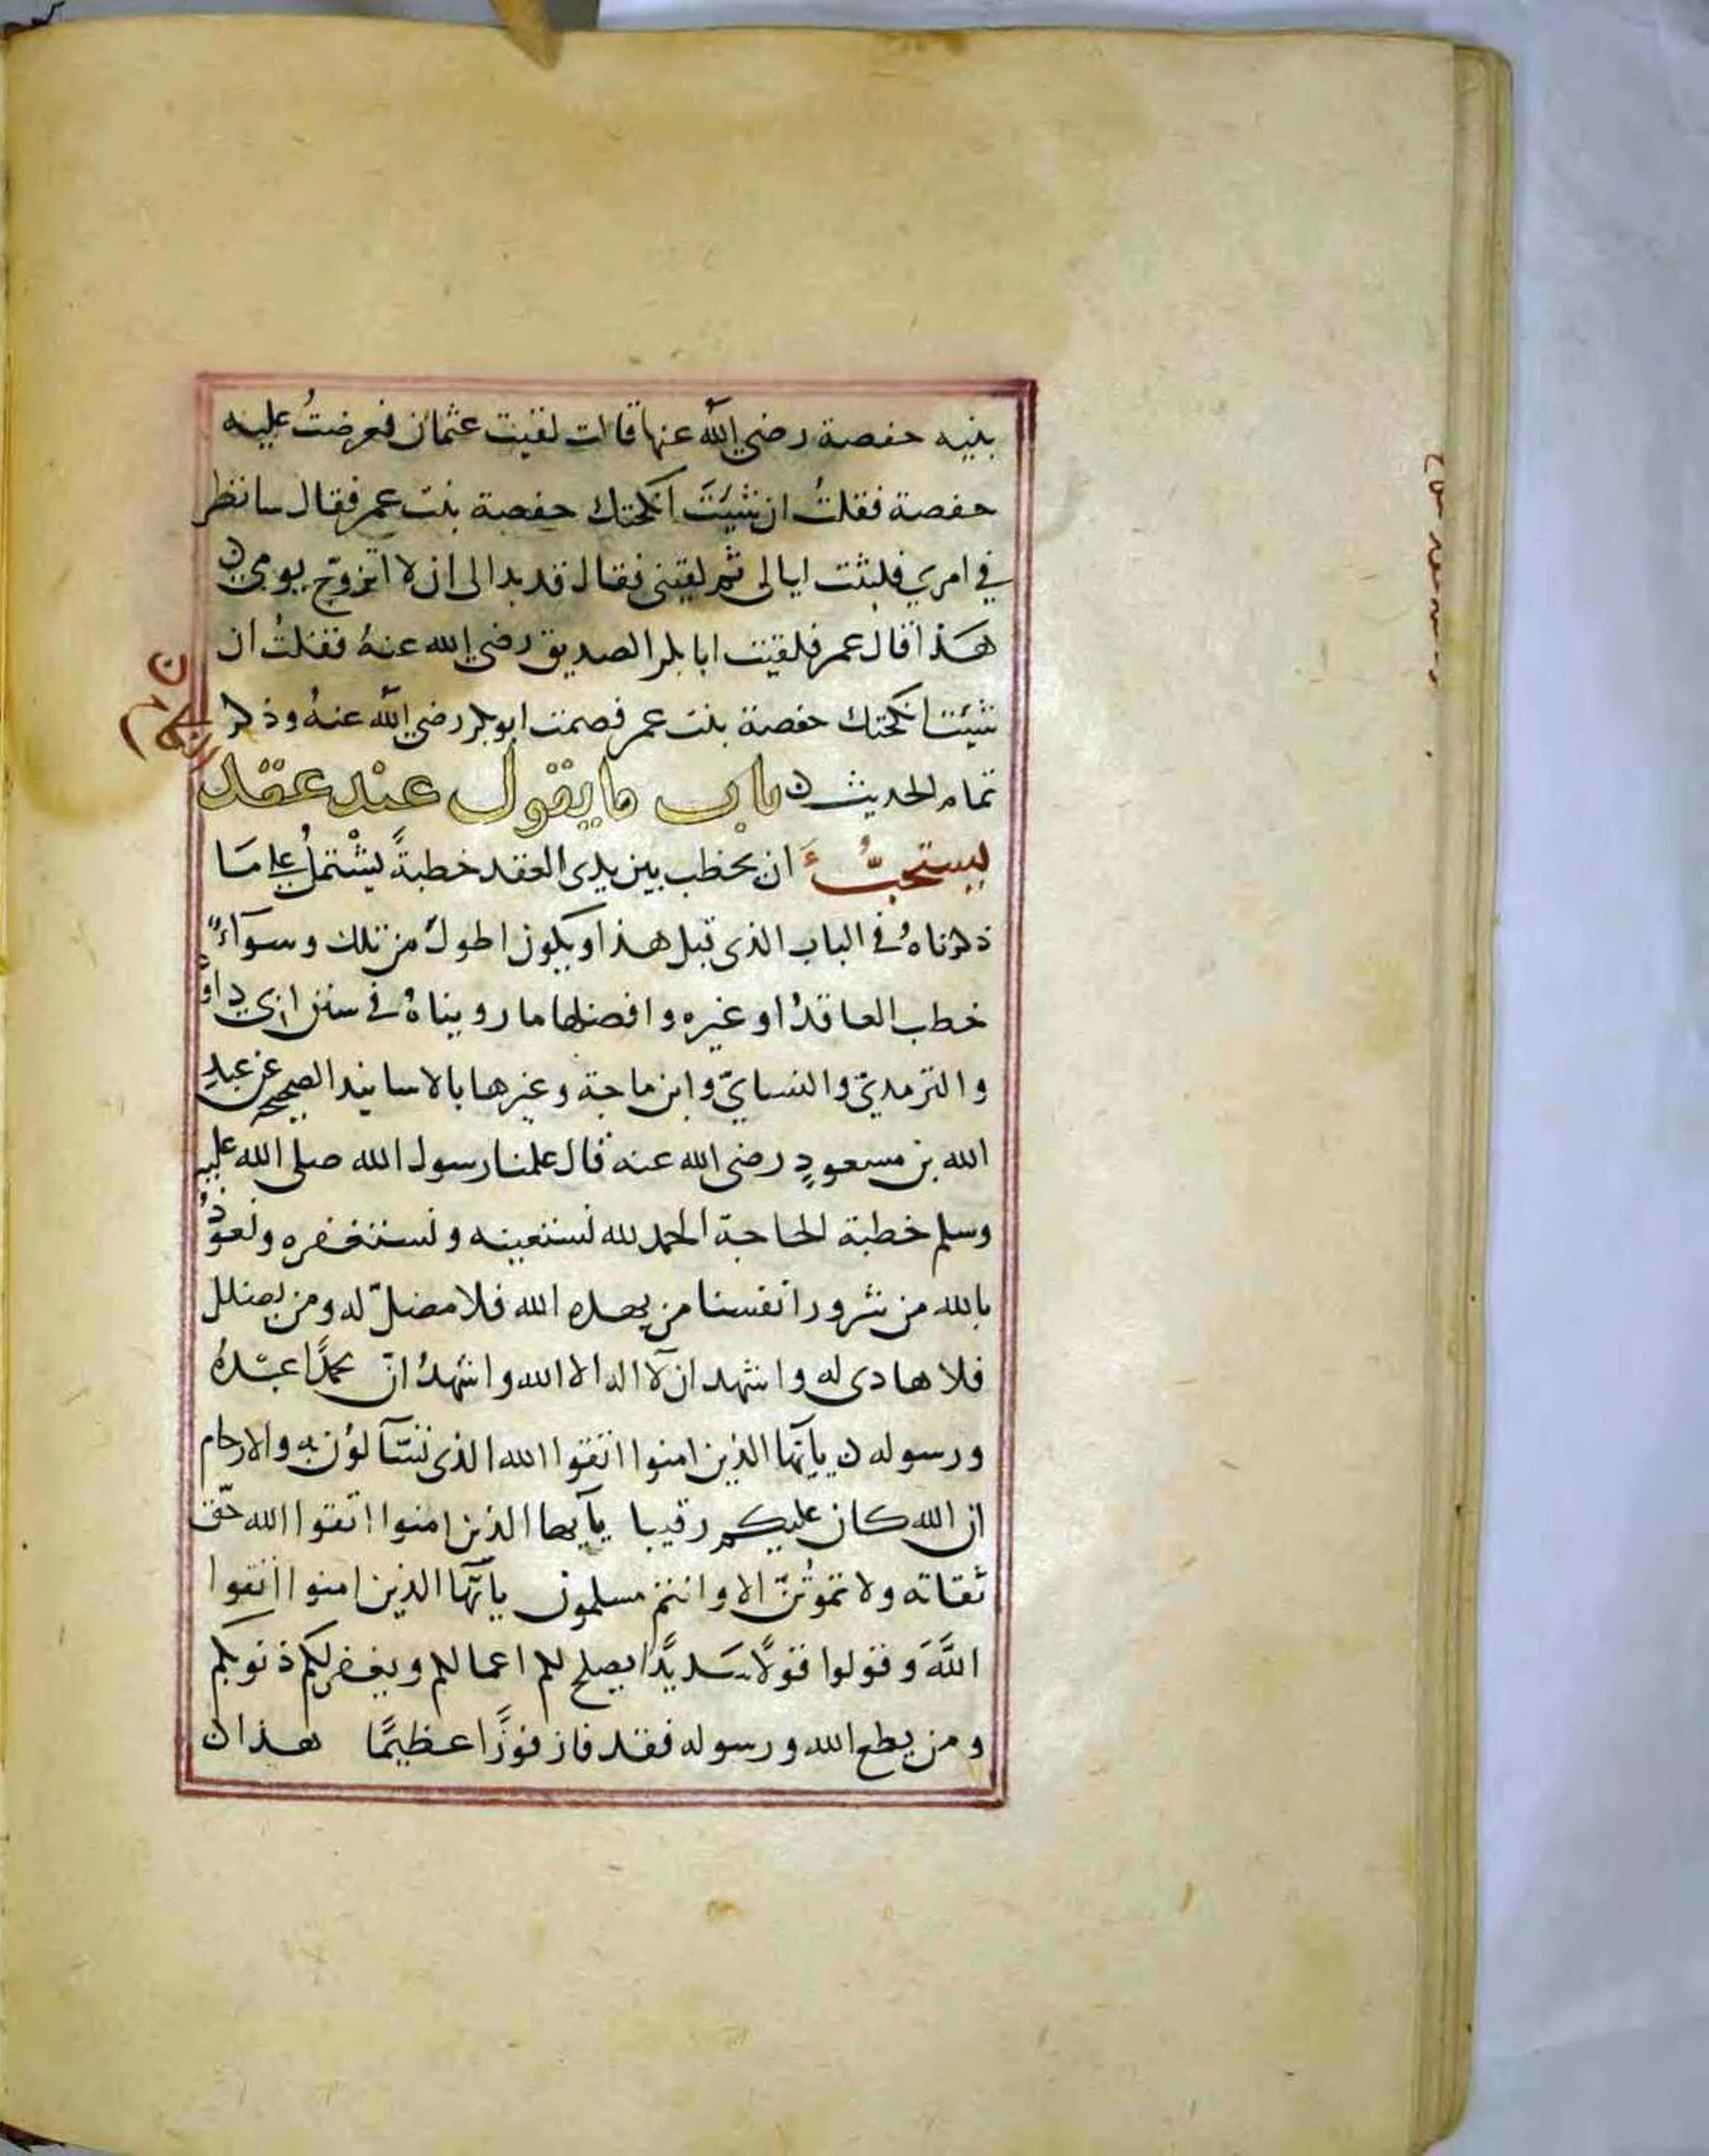 بنيه حفصة رضي الله عنها قالت لقيت عثمان فعرضتُ عليه
حفصة فقلتُ ان شئتَ انكحتك حفصة بنت عمر فقال سانظر
في امري فلبثت ليالى ثم لقينى فقال قد بدالى ان لا اتزوّج يومى
هَذا قال عمر فلقيت ابا بكر الصديق رضي الله عنهُ فقلتُ ان
شئت انكحتك حفصة بنت عمر فصمت ابو بكر رضي الله عنهُ وذكر
تمام الحديث ن باب ما يقول عند عقد
النكاح ن
يستحبُّ ان يخطب بين يدى العقد خطبةً يشْتملُ على مَا
ذكرناهُ في الباب الذى قبل هذا ويكون اطولَ من تلك وسوآءً
خطب العاقدُ او غيره وافضلها ما رويناهُ في سنن ابى داؤ
والترمديّ والنسايّ وابن ماجة وغيرها بالاسانيد الصحيحه عن عبدِ
الله بن مسعودٍ رضى الله عنه قال علمنا رسول الله صلى الله عليه
وسلم خطبة الحاجة الحمد لله نستعينه ونستغفره ونعوذُ
بالله من شرور انفسنا من يهده الله فلا مضلّ له ومن يضلل
فلا هادى له واشهد ان لآ اله الا الله واشهدُ انّ محمدًا عبْدهُ
ورسوله ن يآيّها الذين امنوا اتقوا الله الذى تسّآلوُن به والارحام
ان الله كان عليكم رقيبا يآيها الذين امنوا اتقوا الله حَقّ
تقاته ولا تموُتنّ الا وانتم مسلمون يآيّها الذين امنوا اتقوا
اللَّهَ وقولوا قولًا سَديدًا يصلح لكم اعمالكم ويغفر لكم ذنوبكم
ومن يطع الله ورسوله فقد فاز فوزًا عظيمًا هذا ن